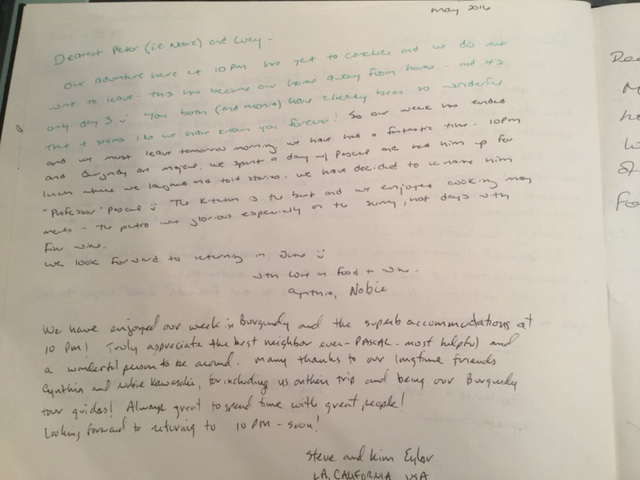 May 2016
Dearest Peter (i.e. Nobie) and Lucy -
Our adventure here at 10 PM has yet to conclude and we do not
want to leave - this has become our home away from home - and it's
only day 3 :) You both (and Monia) have already been so wonderful
that it seems like we have known you forever! So our week has ended
and we must leave tomorrow morning. We have had a fantastic time. 10PM
and Burgundy are magical. We spent a day w/ Pascal and had him up for
lunch where we laughed and told stories. We have decided to rename him
"Professor" Pascal :) The kitchen is the best and we enjoyed cooking many
meals - The patio was glorious especially on the sunny, hot days with
fine wine.
We look forward to returning in June :)
With love in food + wine.
Cynthia, Nobie
We have enjoyed our week in Burgundy and the superb accommodations at
10 PM! Truly appreciate the best neighbor ever - PASCAL - most helpful and
a wonderful person to be around. Many thanks to our longtime friends
Cynthia and Nobie, for including us on their trip and being our Burgundy
tour guides! Always great to spend time with great people!
Looking forward to returning to 10 PM - soon!
Steve and Kim
LA, CALIFORNIA USA